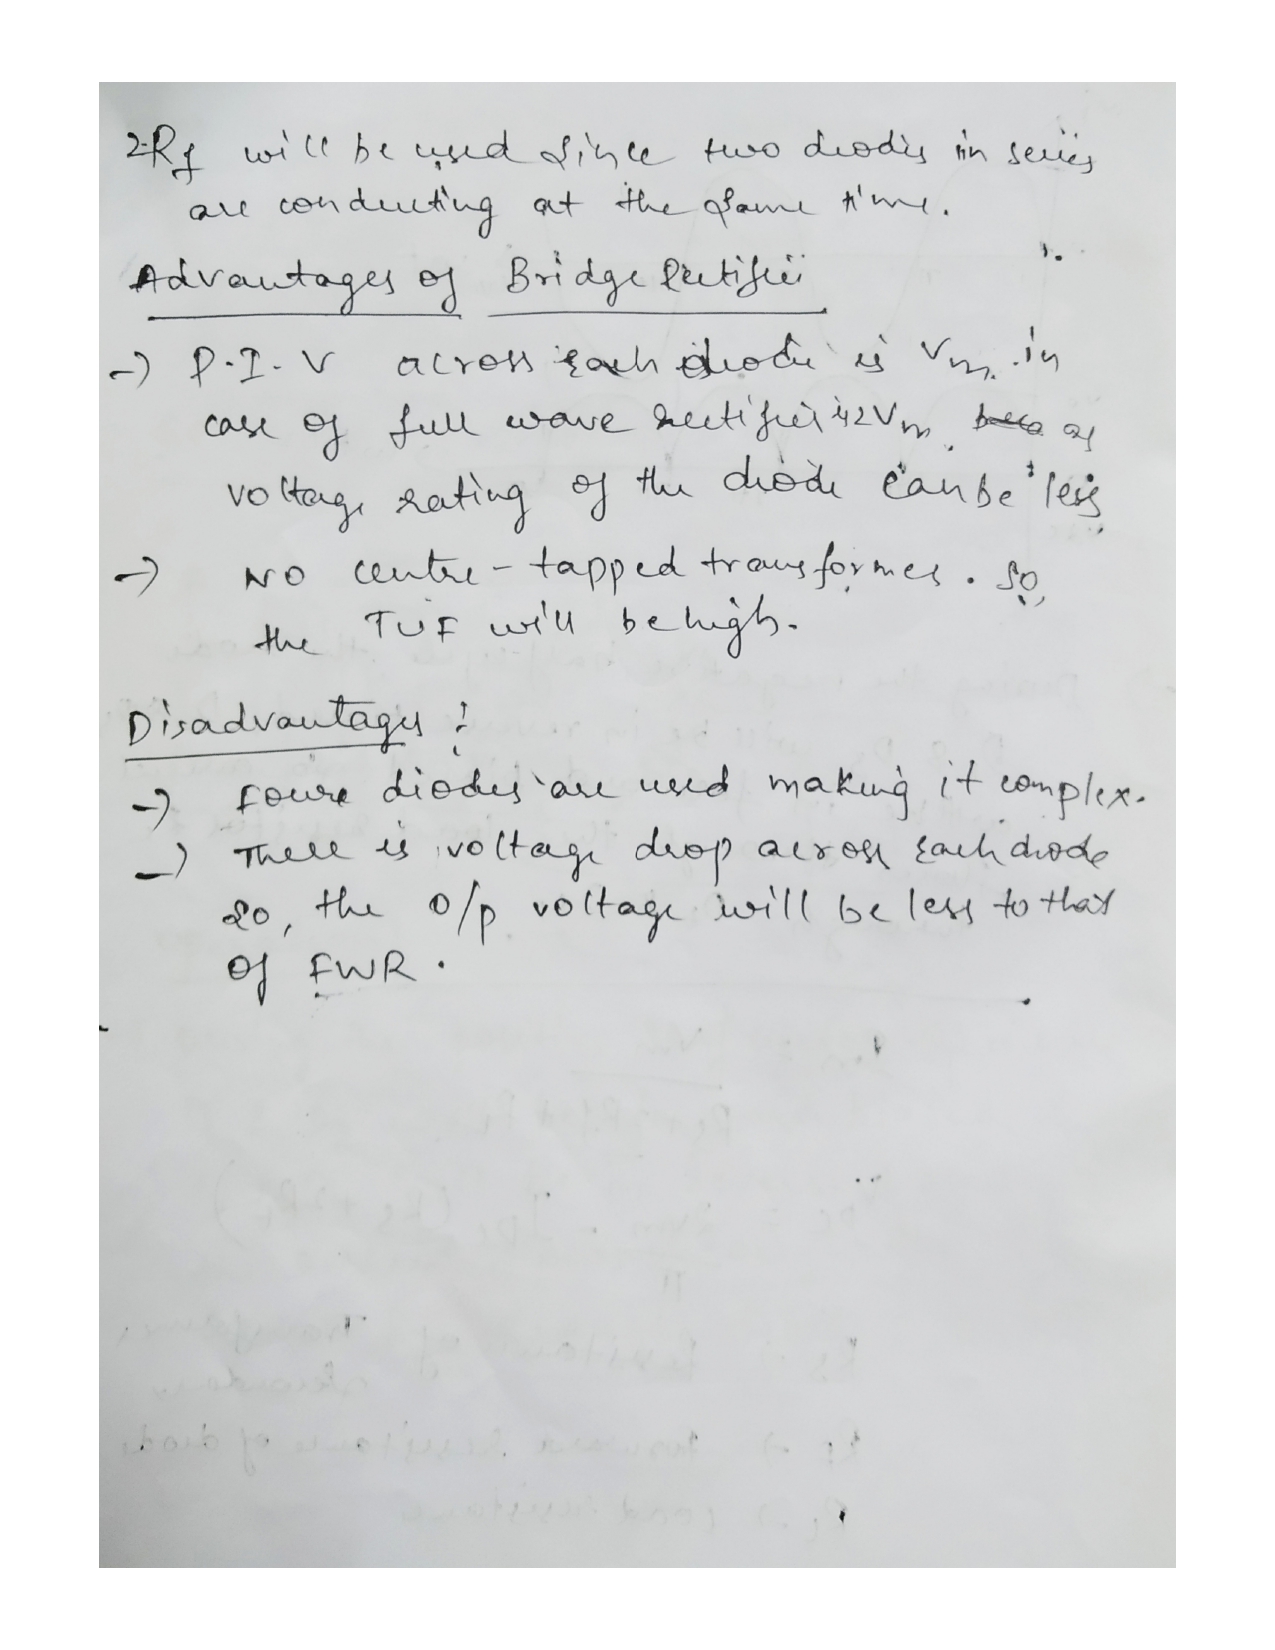 2Rf will be used since two diodes in series
are conducting at the same time.
Advantages of Bridge Rectifier
→ P.I.V across each diode is Vm. in
case of full wave rectifier is 2Vm. as
voltage rating of the diode can be less
→ NO centre-tapped transformer. So,
the TUF will be high.
Disadvantages :
→ Foure diodes are used making it complex.
→ There is voltage drop across each diode
so, the o/p voltage will be less to that
of FWR.